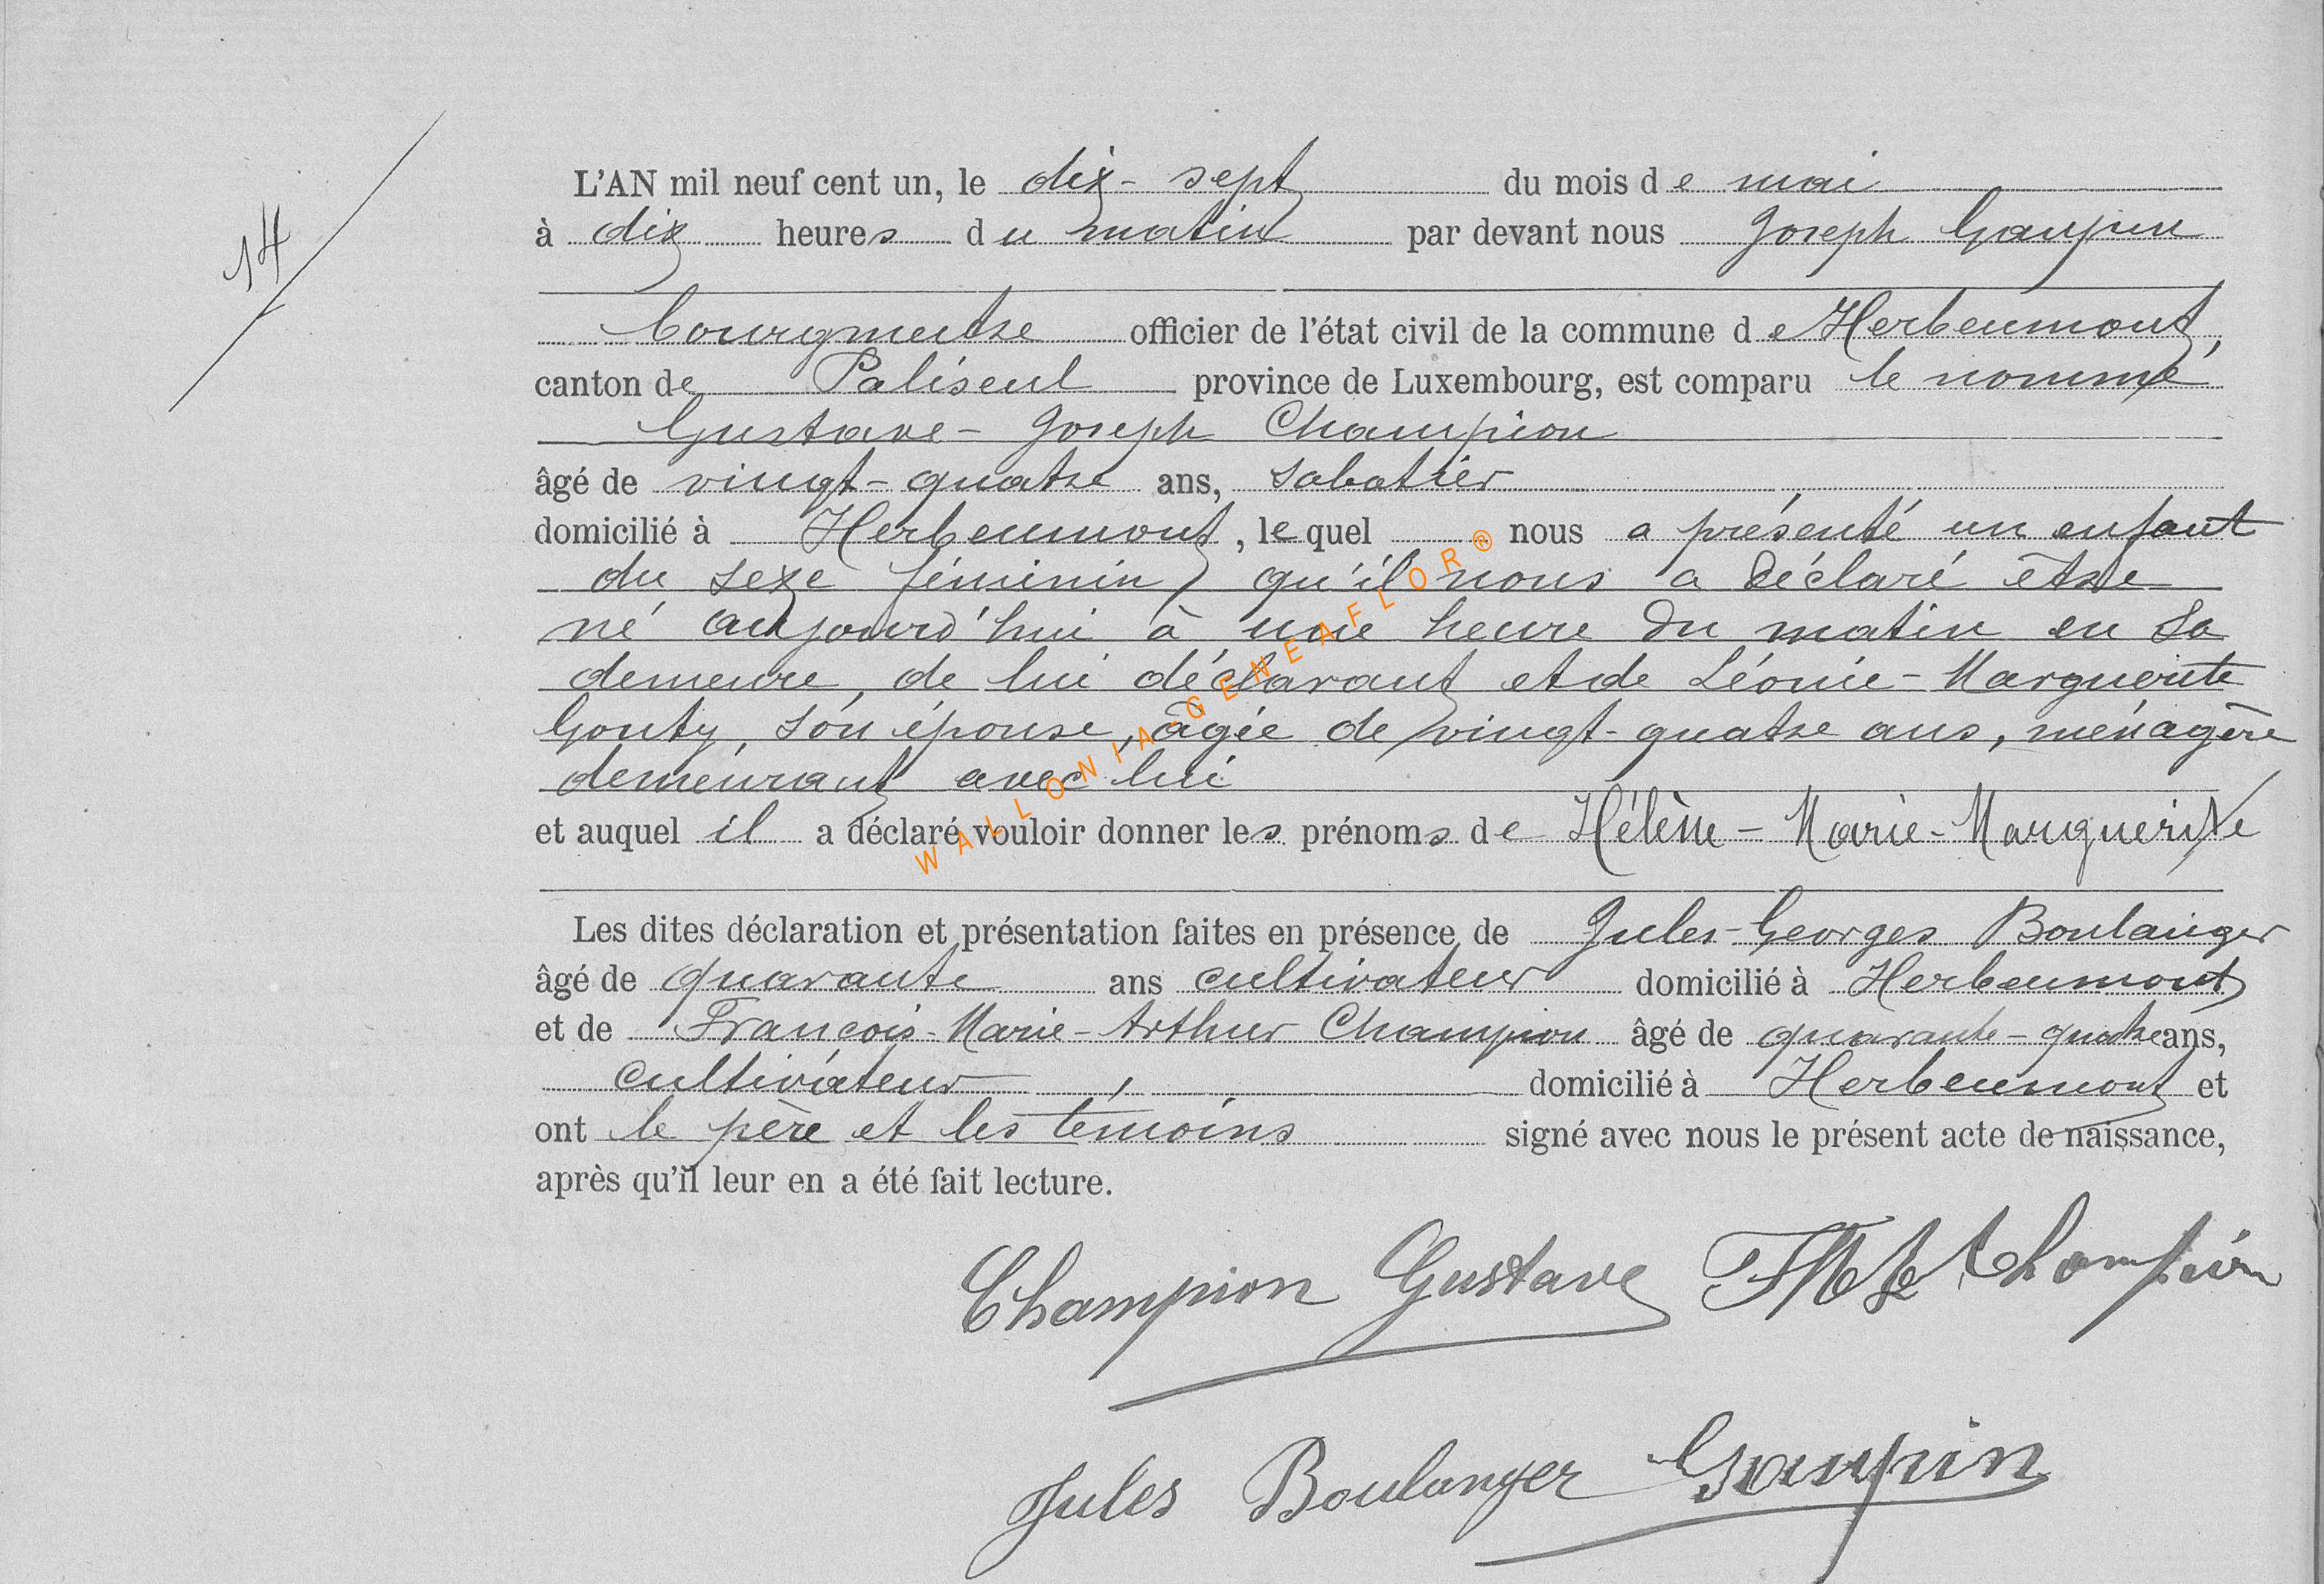 14
L'AN mil neuf cent un, le dix-sept du mois de mai
à dix heures du matin par devant nous Joseph Gaupin
bourgmestre officier de l'état civil de la commune de Herbeumont,
canton de Paliseul province de Luxembourg, est comparu le nommé
Gustave-Joseph Champion
âgé de vingt-quatre ans, sabotier
domicilié à Herbeumont, lequel nous a présenté un enfant
du sexe féminin, qu'il nous a déclaré être
né aujourd'hui à une heure du matin en sa
demeure, de lui déclarant et de Léonie-Marguerite
Gouty, son épouse, âgée de vingt-quatre ans, ménagère
demeurant avec lui
et auquel il a déclaré vouloir donner les prénoms de Hélène-Marie-Marguerite
Les dites déclaration et présentation faites en présence de Jules-Georges Boulanger
âgé de quarante ans cultivateur domicilié à Herbeumont
et de François-Marie-Arthur Champion âgé de quarante-quatre ans,
cultivateur, domicilié à Herbeumont et
ont le père et les témoins signé avec nous le présent acte de naissance,
après qu'il leur en a été fait lecture.
Champion Gustave Champion
Jules Boulanger Gaupin
WALLONIA-GENEAFLOR®